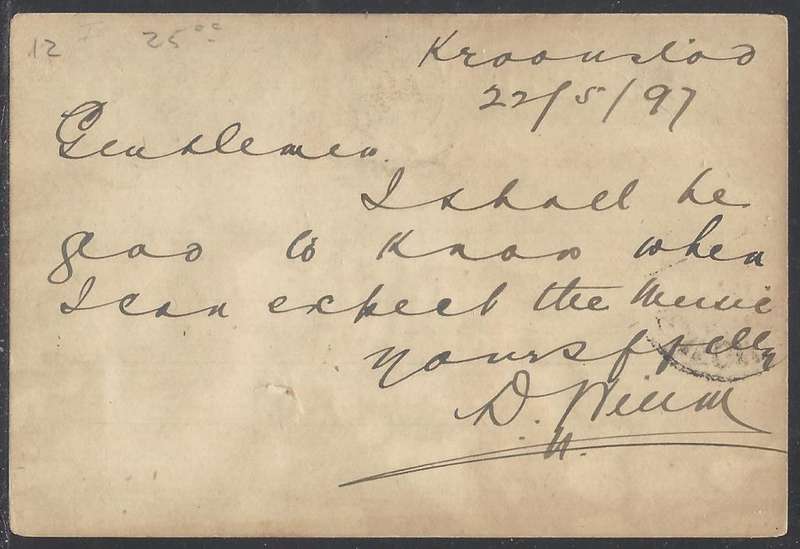 12 25⁰⁰
Kroonstad
22/5/97
Gentlemen
I shall be
glad to know when
I can expect the Music
Yours ffully
D.